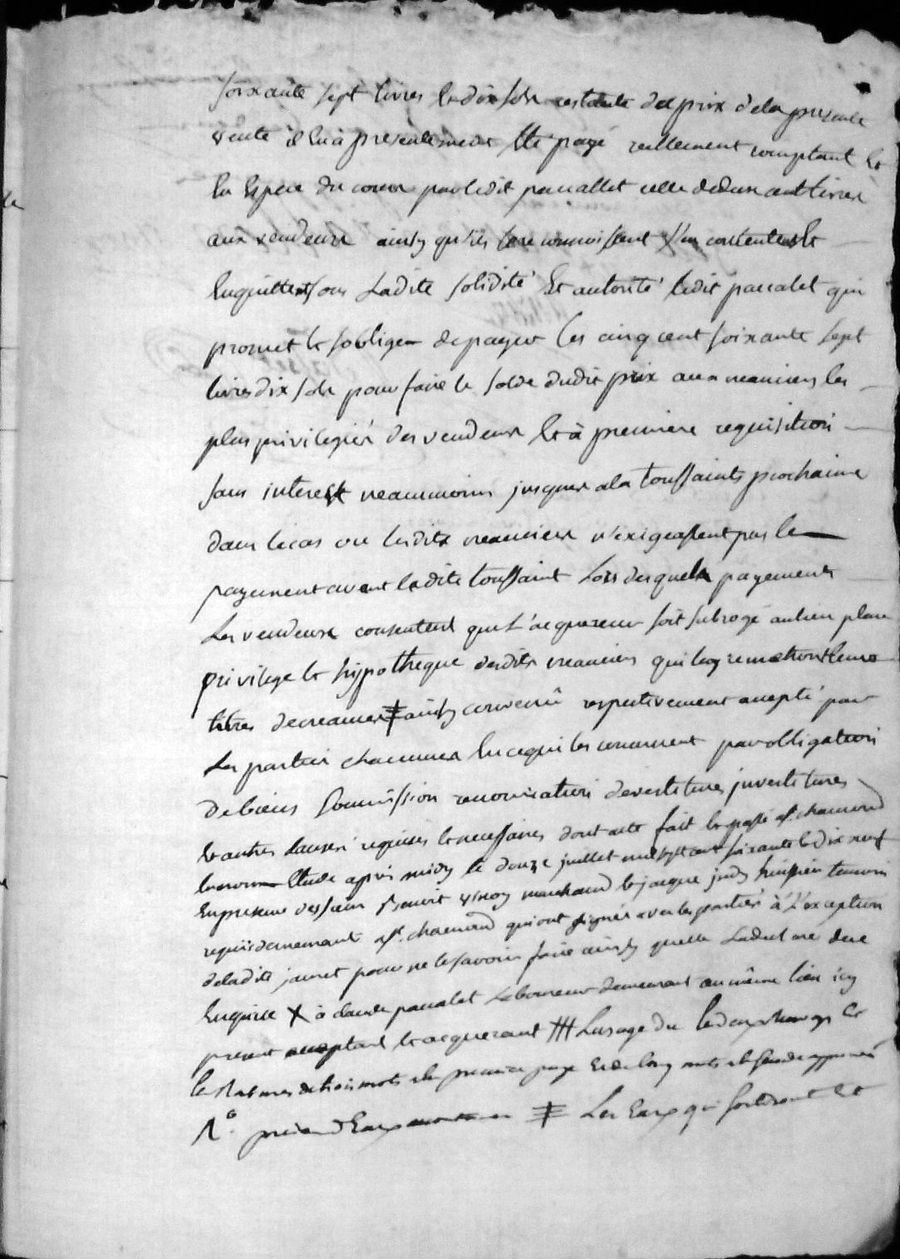 soixante sept livres et dix sols restante du prix de la presente
vente il en à presentement Eté payé reellement comptant Et
En Espece du cours par ledit paucallet celle de deux cent livres
aux vendeurs ainsy qu'ils le reconnoissent s'en contentent Et
Enquittent sous Ladite solidité Et autorité ledit paucalet qui
promet Et soblige de payer les cinq cent soixante sept
livres dix sols pour faire le solde dudit prix aux creanciers les
plus privilegiés des vendeurs Et à premiere requisition
sans interest neanmoins jusques a la toussaints prochaine
dans le cas ou lesdits creanciers n'exigeassent pas le
payement avant ladite toussaint Lors desquels payements
Les vendeurs consentent que L'acquereur soit subrogé au lieu place
privilege Et hypotheque desdits creanciers qui luy remettront leurs
titres de creances ainsy convenu respectivement accepté par
Les parties chacunes En ce qui les concernent par obligation
De biens soumission renonciation devestitures investitures
Et autres clauses requises Et necessaires dont acte fait Et passé à st. chamond
En notre Etude après midy le douze juillet mil sept cent soixante Et dix neuf
En presence des sieurs Benoit marchand Et jacque huissier temoins
requis demeurant à st. chamond qui ont signés avec les parties à L'exception
de ladite jamet pour ne le savoir faire ainsy quelle La declaré de ce
Enquise X à claude paucalet Laboureur demeurant au même lieu icy
present acceptant Et acquerant ## L'usage du Et
Et de trois mots à la premiere page Et de cinq mots approuvés
N.° ‡ Les Eaux qui sortiront Et